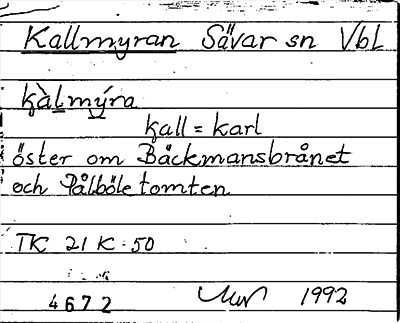 Kallmyran Sävar sn Vbl
kàlmýra
kall = karl
öster om Bäckmansbrånet
och Pålböletomten
TK 21 K:50
4672 1992